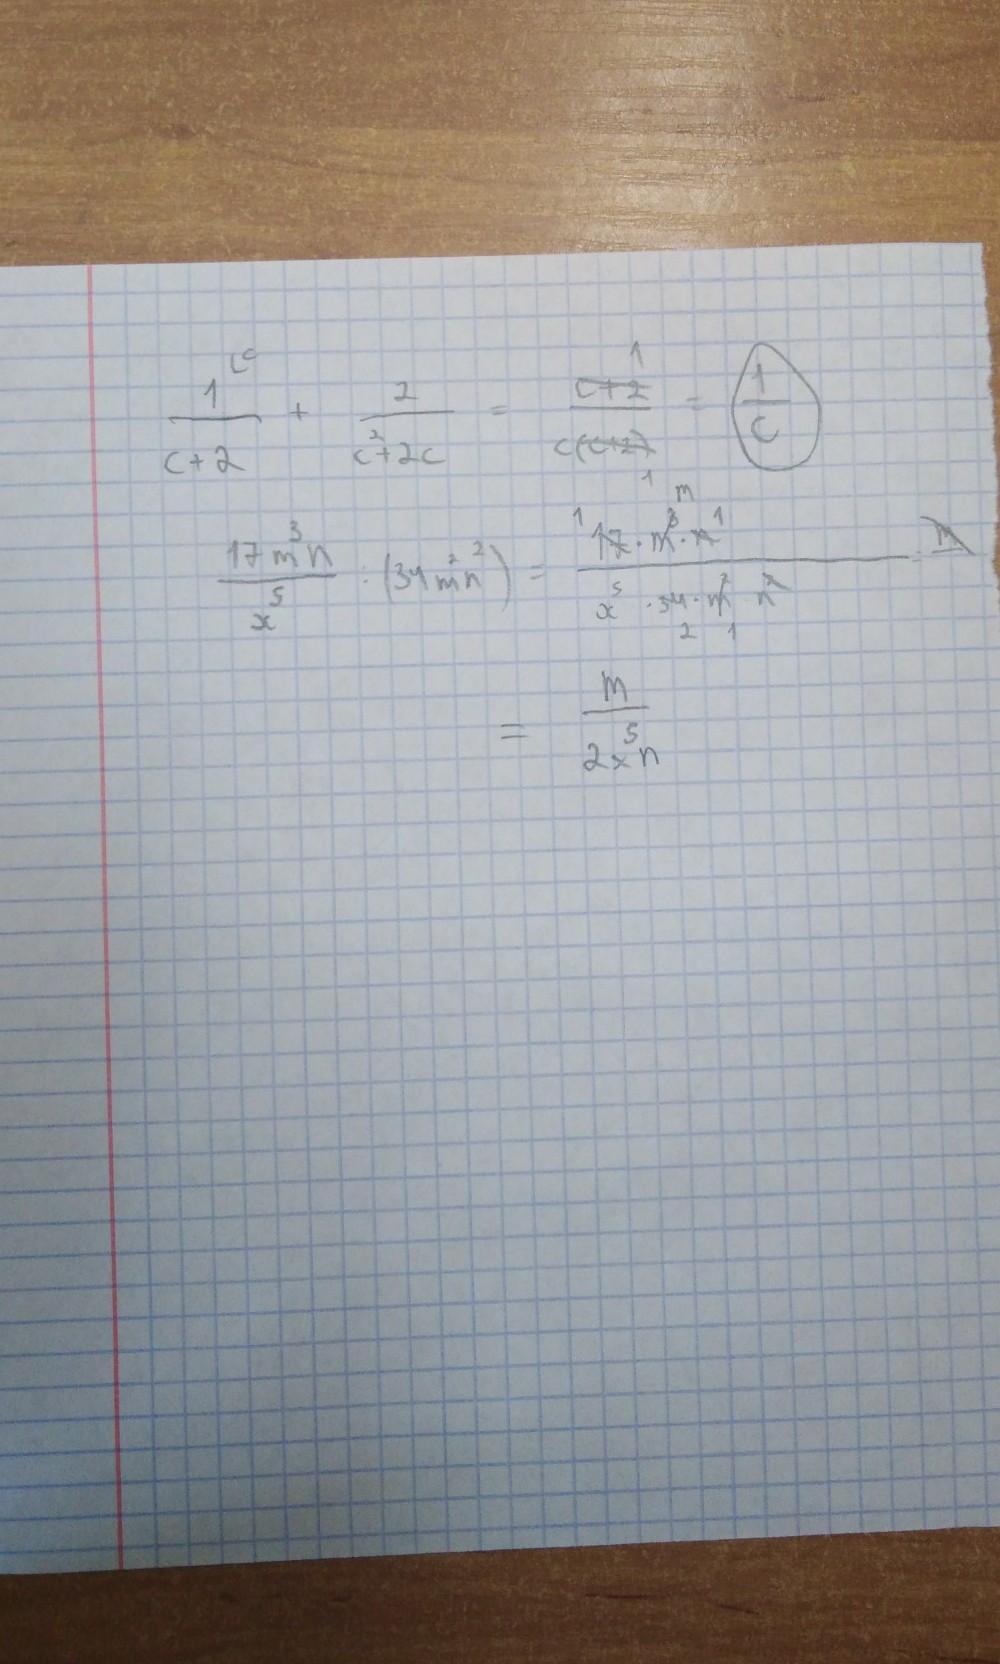 1/(c+2) + 2/(c²+2c) = (c+2)/(c(c+2)) = 1/c
17m³n/x⁵ : (34m²n²) = 17·m³·n/(x⁵·34·m²n²)
= m/(2x⁵n)